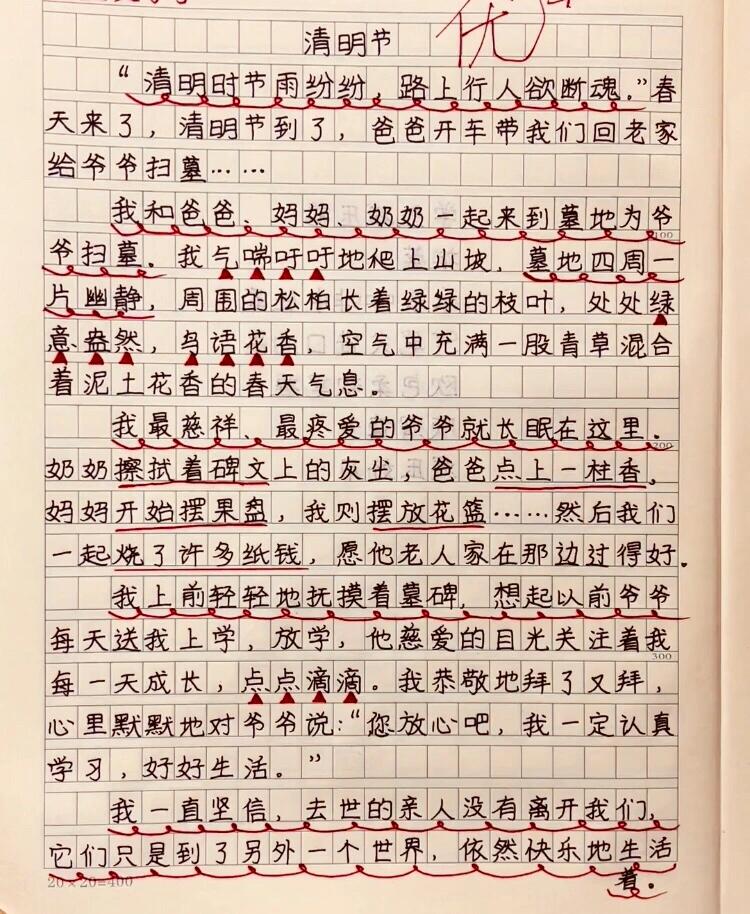 优
清明节
“清明时节雨纷纷，路上行人欲断魂。”春
天来了，清明节到了，爸爸开车带我们回老家
给爷爷扫墓……
我和爸爸、妈妈、奶奶一起来到墓地为爷
100
爷扫墓。我气喘吁吁地爬上山坡，墓地四周一
片幽静，周围的松柏长着绿绿的枝叶，处处绿
意盎然，鸟语花香，空气中充满一股青草混合
着泥土花香的春天气息。
我最慈祥、最疼爱的爷爷就长眠在这里。
200
奶奶擦拭着碑文上的灰尘，爸爸点上一柱香，
妈妈开始摆果盘，我则摆放花篮……然后我们
一起烧了许多纸钱，愿他老人家在那边过得好。
我上前轻轻地抚摸着墓碑，想起以前爷爷
每天送我上学，放学，他慈爱的目光关注着我
300
每一天成长，点点滴滴。我恭敬地拜了又拜，
心里默默地对爷爷说：“您放心吧，我一定认真
学习，好好生活。”
我一直坚信，去世的亲人没有离开我们，
它们只是到了另外一个世界，依然快乐地生活
20×20=400
着。